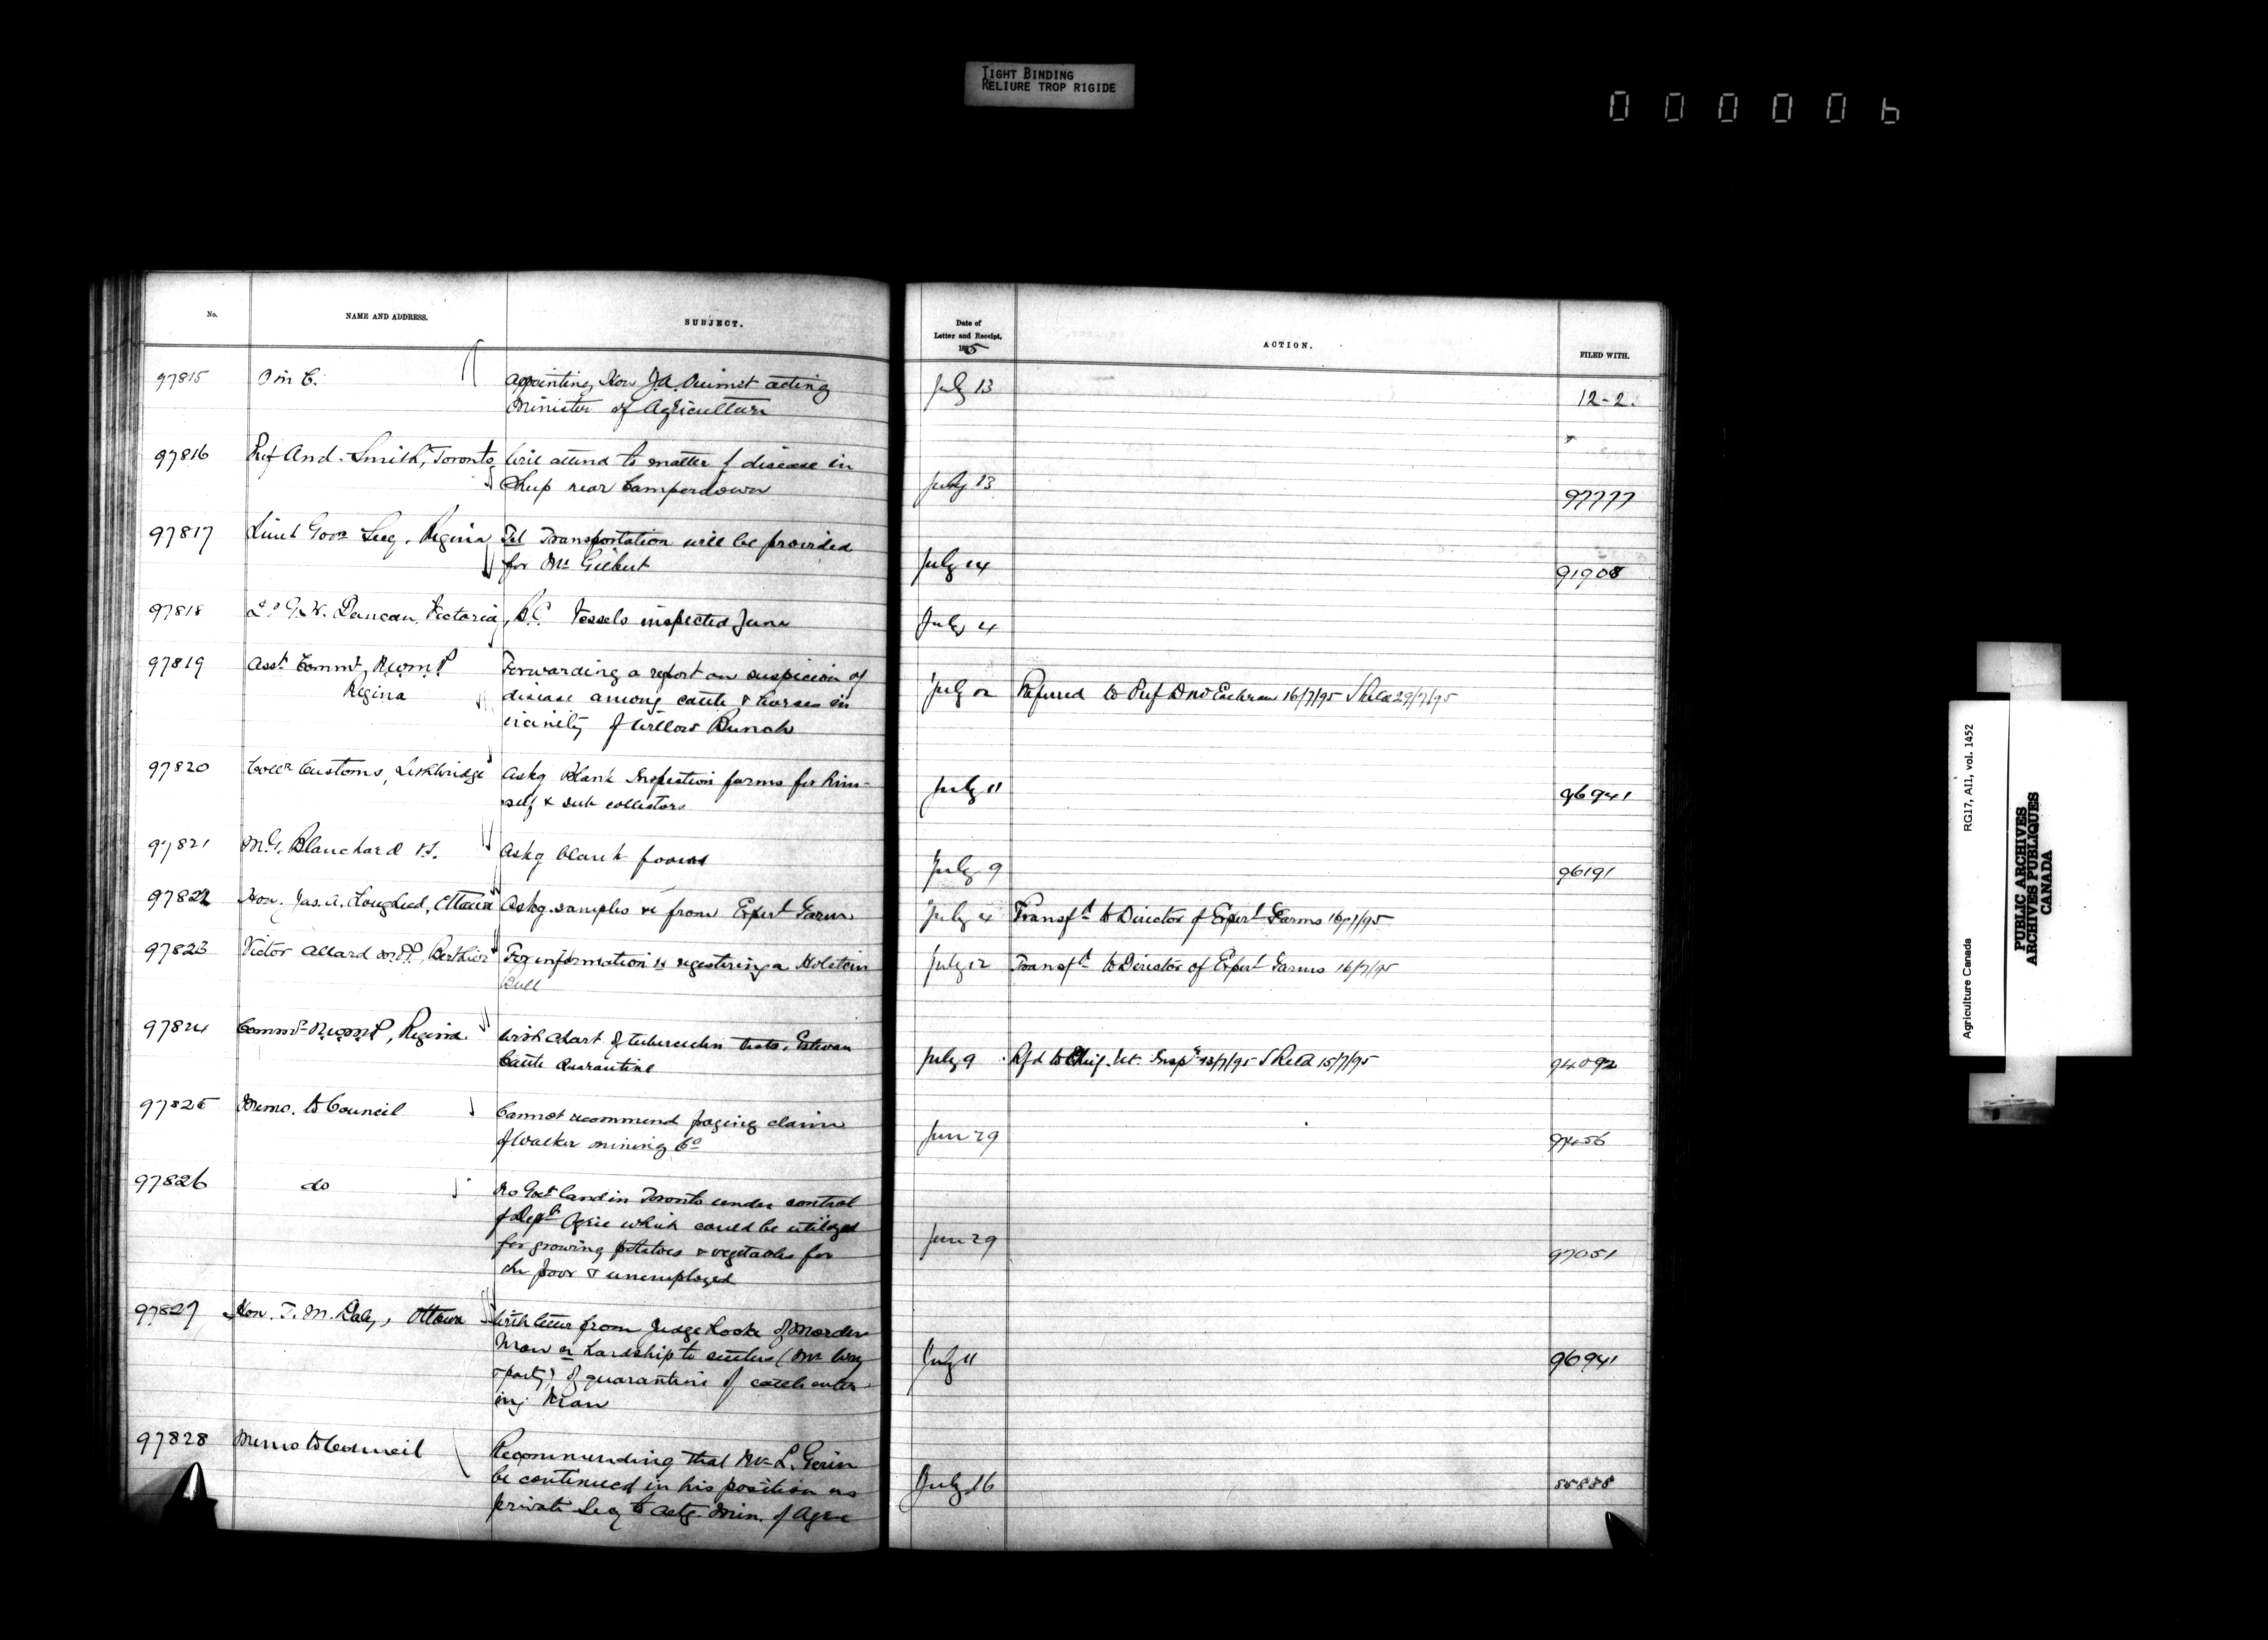 TIGHT BINDING
RELIURE TROP RIGIDE
000006
No.
NAME AND ADDRESS.
SUBJECT.
Date of
Letter and Receipt,
1895
ACTION.
FILED WITH.
97815 O in C. Appointing Hon J.A. Ouimet acting July 13 12-2.
Minister of Agriculture
97816 Prof And. Smith, Toronto, Will attend to matter of disease in
Sheep near Camperdown July 13 97777
97817 Lieut Govr Secy. Regina Tel Transportation will be provided
for Mr Gilbert July 14 91908
97818 G.W. Duncan, Victoria, B.C. Vessels inspected June July 4
97819 Asst Commr, N.W.M.P Forwarding a report on suspicion of
Regina disease among cattle & horses in July 12 Referred to Prof D McEachran 16/7/95 S Retd 29/7/95
vicinity of Willow Bunch
97820 Collr Customs, Lethbridge Askg Blank Inspection forms for him-
self & sub collectors July 11 96941
97821 M.G. Blanchard V.S. Askg blank forms July 9 96191
97822 Hon. Jas. A. Lougheed, Ottawa Askg samples &c from Experl Farm July 4 Transfd to Director of Experl Farms 16/7/95
97823 Victor Allard M.P., Berthier For information re registering a Holstein July 12 Transfd to Director of Experl Farms 16/7/95
Bull
97824 Commr N.W.M.P, Regina With chart of tuberculin tests, Estevan
Cattle Quarantine July 9 Rfd to Chief Vet. Inspr 13/7/95 S Retd 15/7/95 94092
97825 Memo. to Council Cannot recommend paying claim
of Walker Mining Co Jun 29
97826 do No Govt land in Toronto under control
of Dept Agric which could be utilized
for growing potatoes & vegetables for Jun 29 97051
the poor & unemployed
97827 Hon. T. M. Daly, Ottawa With letter from Judge Locke of Morden
Man re hardship to settlers (Mr Way
& party) of quarantine of cattle enter- July 11 96941
ing Man
97828 Memo to Council Recommending that Mr L. Gerin
be continued in his position as July 16
private Secy to Actg. Min. of Agric
Agriculture Canada RG17, AII, vol. 1452
PUBLIC ARCHIVES
ARCHIVES PUBLIQUES
CANADA